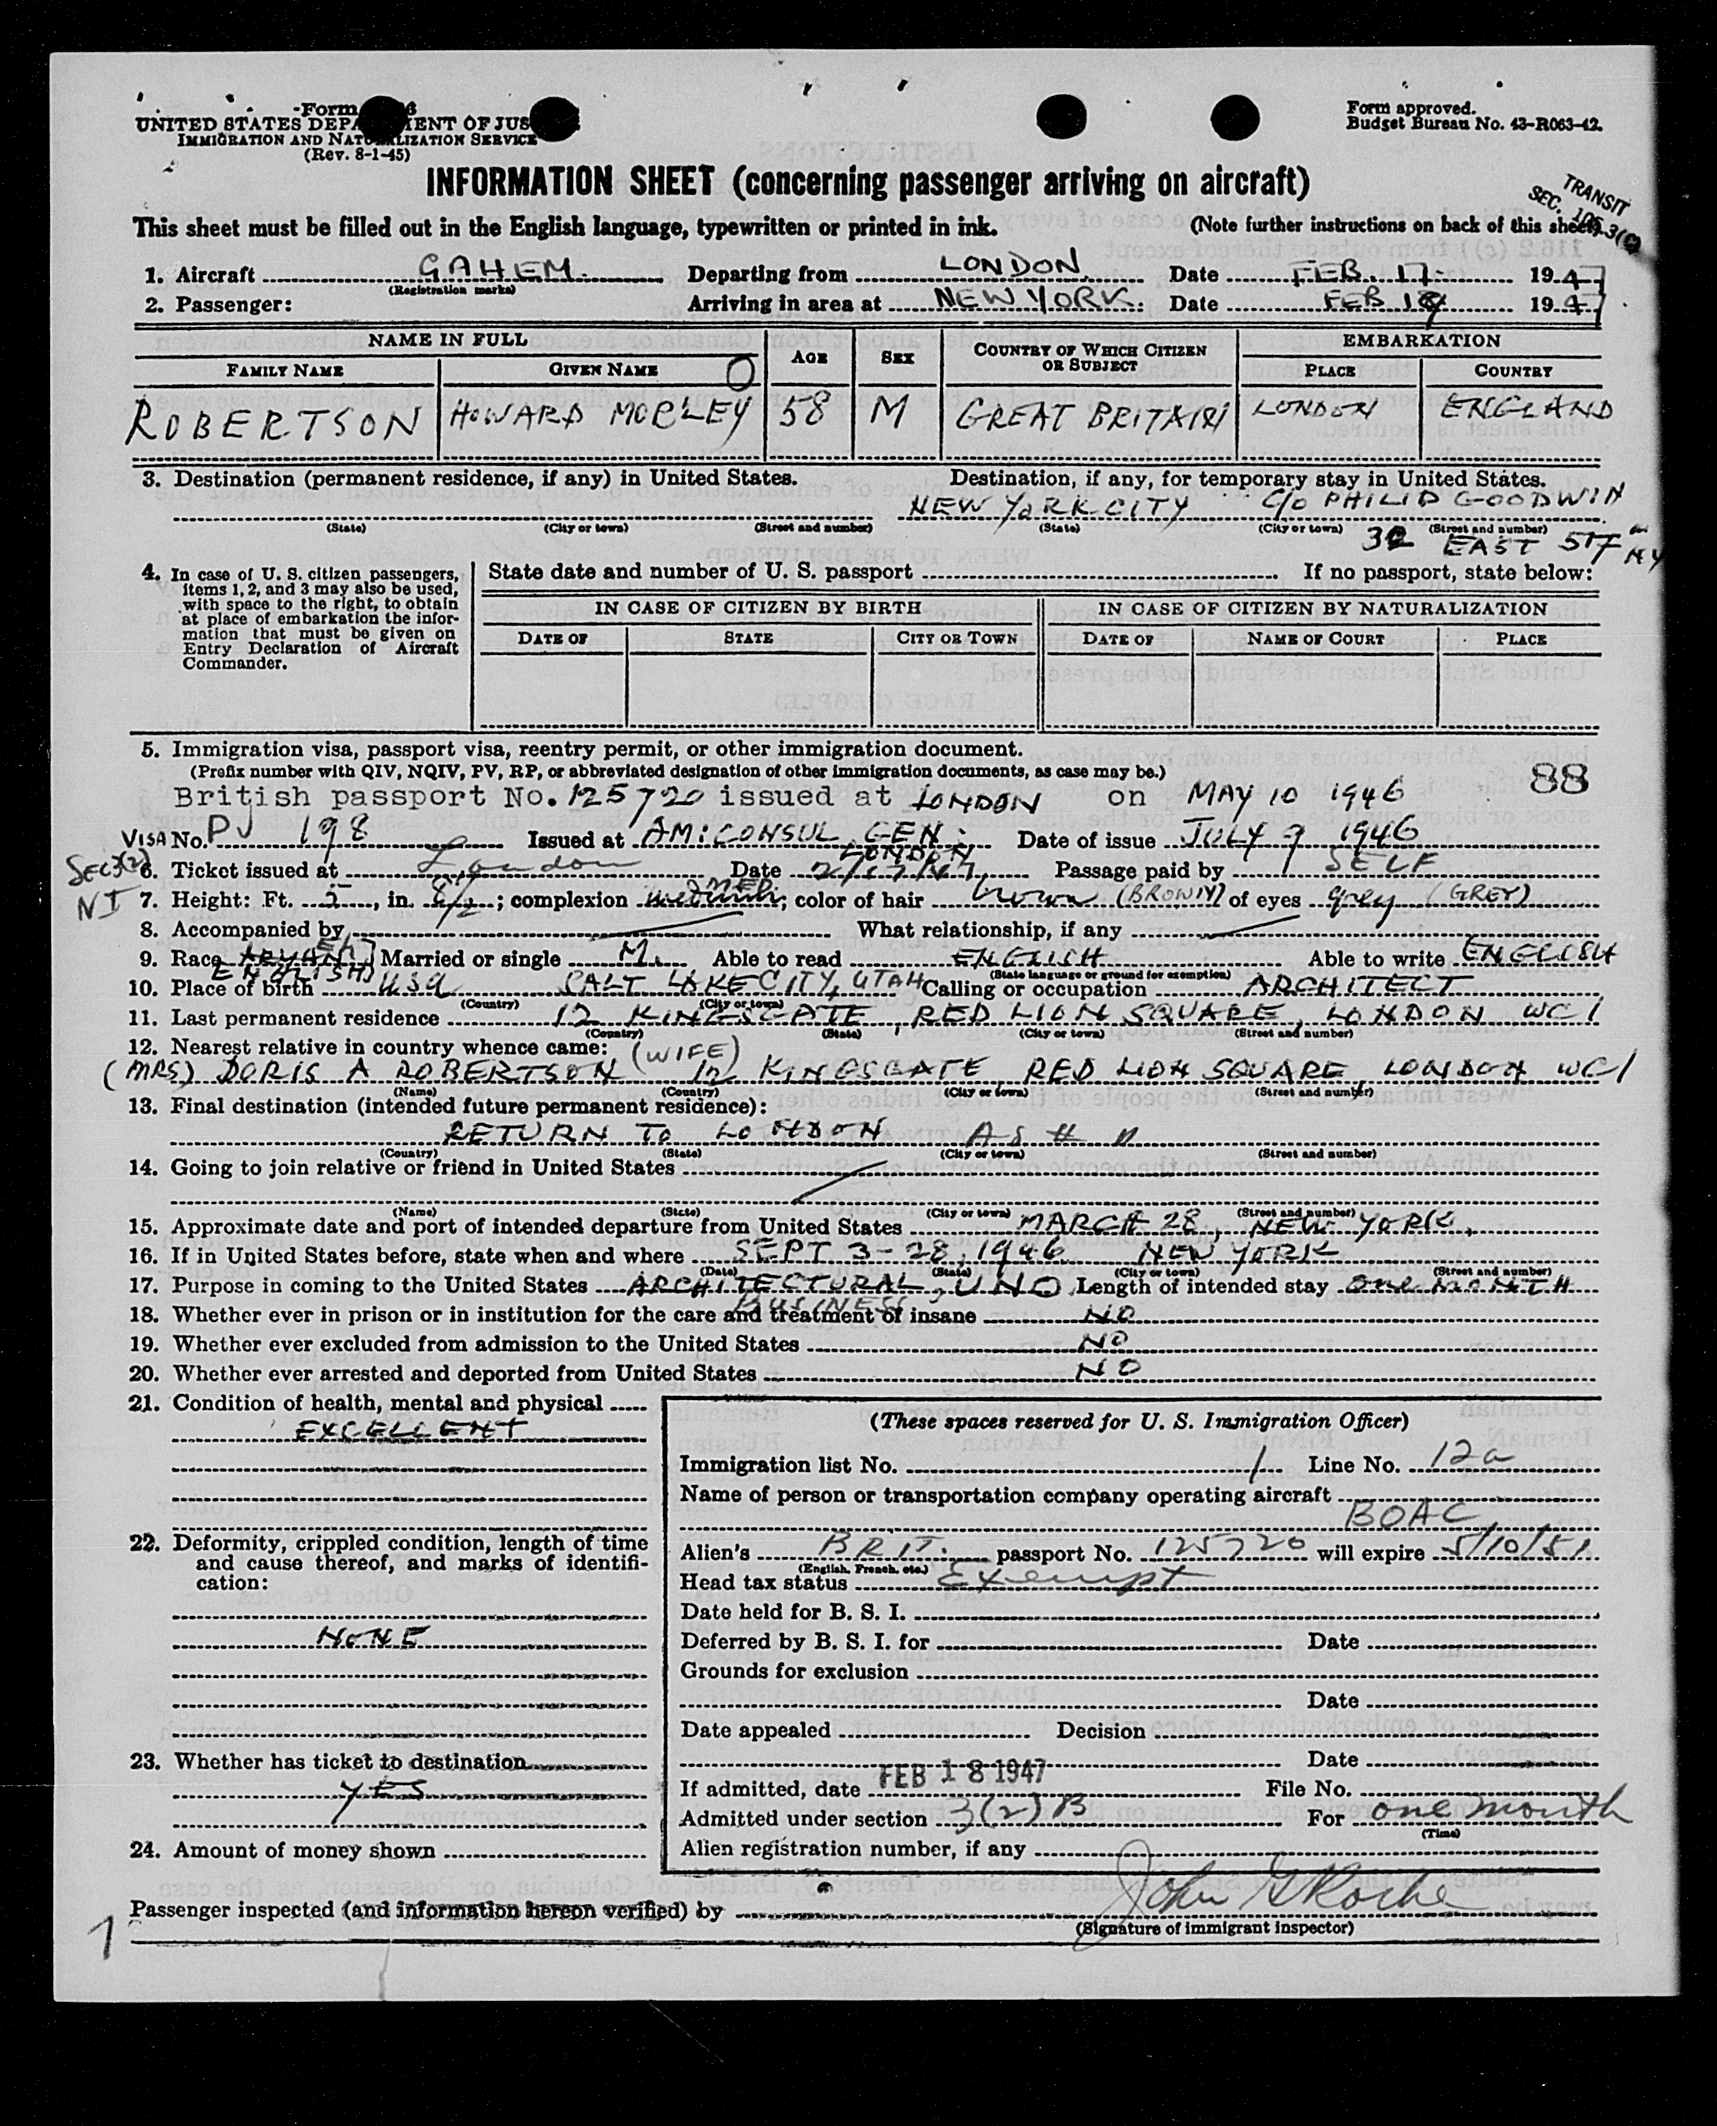 Form
UNITED STATES DEPARTMENT OF JUS
IMMIGRATION AND NATURALIZATION SERVICE
(Rev. 8-1-45)
Form approved.
Budget Bureau No. 43-R063-42.
INFORMATION SHEET (concerning passenger arriving on aircraft)
TRANSIT
SEC. 105.3(c)
This sheet must be filled out in the English language, typewritten or printed in ink. (Note further instructions on back of this sheet).
1. Aircraft G.AHEM. Departing from LONDON. Date FEB. 17. 1947
(Registration marks)
2. Passenger: Arriving in area at NEW YORK. Date FEB 18 1947
NAME IN FULL
AGE SEX COUNTRY OF WHICH CITIZEN OR SUBJECT EMBARKATION
FAMILY NAME GIVEN NAME PLACE COUNTRY
ROBERTSON HOWARD MORLEY 58 M GREAT BRITAIN LONDON ENGLAND
3. Destination (permanent residence, if any) in United States. Destination, if any, for temporary stay in United States.
NEW YORK CITY C/O PHILIP GOODWIN
(State) (City or town) (Street and number) (State) (City or town) (Street and number)
32 EAST 57 NY
4. In case of U. S. citizen passengers, items 1, 2, and 3 may also be used, with space to the right, to obtain at place of embarkation the information that must be given on Entry Declaration of Aircraft Commander.
State date and number of U. S. passport If no passport, state below:
IN CASE OF CITIZEN BY BIRTH IN CASE OF CITIZEN BY NATURALIZATION
DATE OF STATE CITY OR TOWN DATE OF NAME OF COURT PLACE
5. Immigration visa, passport visa, reentry permit, or other immigration document.
(Prefix number with QIV, NQIV, PV, RP, or abbreviated designation of other immigration documents, as case may be.) 88
British passport No. 125720 issued at LONDON on MAY 10 1946
VISA No. PV 198 Issued at AM: CONSUL GEN: LONDON Date of issue JULY 9 1946
SEC 3(2) 6. Ticket issued at London Date 2/17/47 Passage paid by SELF
NI 7. Height: Ft. 5, in. 8 1/2; complexion medium MED.; color of hair brown (BROWN) of eyes grey (GREY)
8. Accompanied by What relationship, if any
9. Race ARYAN [ENGLISH] Married or single M. Able to read ENGLISH Able to write ENGLISH
(State language or ground for exemption)
10. Place of birth USA SALT LAKE CITY, UTAH Calling or occupation ARCHITECT
(Country) (City or town)
11. Last permanent residence 12 KINGSGATE, RED LION SQUARE, LONDON WC1
(Country) (State) (City or town) (Street and number)
12. Nearest relative in country whence came: (WIFE)
(MRS) DORIS A ROBERTSON 12 KINGSGATE RED LION SQUARE LONDON WC1
(Name) (Country) (City or town) (Street and number)
13. Final destination (intended future permanent residence):
RETURN TO LONDON AS # 11
(Country) (State) (City or town) (Street and number)
14. Going to join relative or friend in United States
(Name) (State) (City or town) (Street and number)
15. Approximate date and port of intended departure from United States MARCH 28, NEW YORK,
16. If in United States before, state when and where SEPT 3-28, 1946 NEW YORK
(Date) (State) (City or town) (Street and number)
17. Purpose in coming to the United States ARCHITECTURAL BUSINESS, UNO Length of intended stay ONE MONTH
18. Whether ever in prison or in institution for the care and treatment of insane NO
19. Whether ever excluded from admission to the United States NO
20. Whether ever arrested and deported from United States NO
21. Condition of health, mental and physical
EXCELLENT
22. Deformity, crippled condition, length of time and cause thereof, and marks of identification:
NONE
23. Whether has ticket to destination
YES
24. Amount of money shown
(These spaces reserved for U. S. Immigration Officer)
Immigration list No. 1 Line No. 12a
Name of person or transportation company operating aircraft
BOAC
Alien's BRIT. passport No. 125720 will expire 5/10/51
(English, French, etc.)
Head tax status Exempt
Date held for B. S. I.
Deferred by B. S. I. for Date
Grounds for exclusion
Date
Date appealed Decision
Date
If admitted, date FEB 18 1947 File No.
Admitted under section 3(2)B For one month
(Time)
Alien registration number, if any
Passenger inspected (and information hereon verified) by John G Roche
(Signature of immigrant inspector)
1